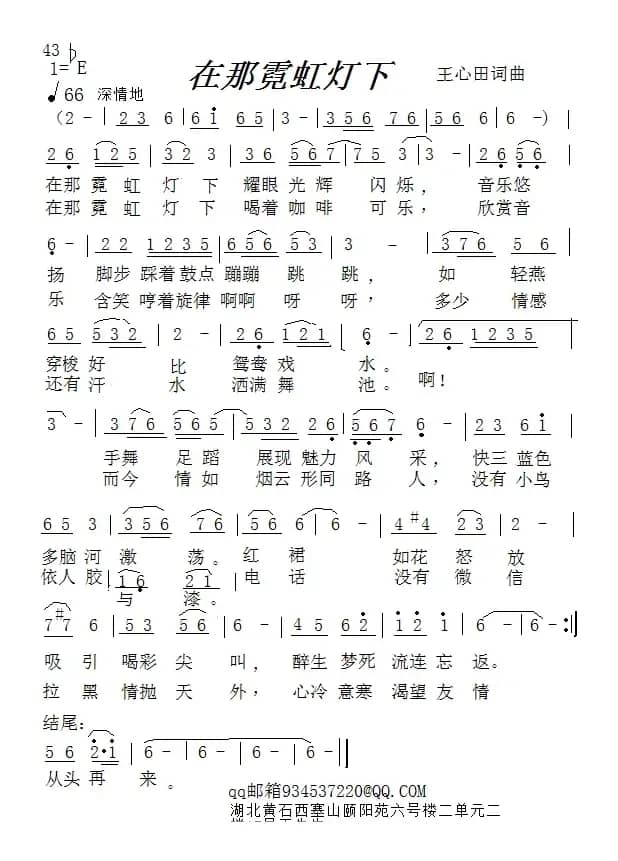 43
1=♭E
在那霓虹灯下
王心田词曲
♩66 深情地
(2 - | 2 3 6 | 6 1 | 6 5 | 3 - | 3 5 6 | 7 6 | 5 6 | 6 - | 6 -) |
2 6 | 1 2 5 | 3 2 3 | 3 6 | 5 6 7 | 7 5 3 | 3 - | 2 6 | 5 6 |
在那霓虹灯下耀眼光辉闪烁，音乐悠
在那霓虹灯下喝着咖啡可乐，欣赏音
6 - | 2 2 | 1 2 3 5 | 6 6 5 | 5 3 | 3 - | 3 7 6 | 5 6 |
扬脚步踩着鼓点蹦蹦跳跳，如轻燕
乐含笑哼着旋律啊啊呀呀，多少情感
6 5 | 5 3 2 | 2 - | 2 6 | 1 2 1 | 6 - | 2 6 | 1 2 3 5 |
穿梭好比鸳鸯戏水。啊！
还有汗水洒满舞池。
3 - | 3 7 6 | 5 6 5 | 5 3 2 | 2 6 | 5 6 7 | 6 - | 2 3 | 6 1 |
手舞足蹈展现魅力风采，快三蓝色
而今情如烟云形同路人，没有小鸟
6 5 | 3 | 3 5 6 | 7 6 | 5 6 | 6 - | 4 #4 | 2 3 | 6 - |
多脑河激荡。红裙如花怒放
依人胶
1 6 | 2 1 |
电话没有微信
与漆。
7 #7 | 6 | 5 3 | 5 6 | 6 - | 4 5 | 6 2 | 1 2 1 | 1 2 | 1 | 6 - | 6 - :||
吸引喝彩尖叫，醉生梦死流连忘返。
拉黑情抛天外，心冷意寒渴望友情
结尾：
5 6 | 2·1 | 6 - | 6 - | 6 - |
从头再来。
qq邮箱934537220@QQ.COM
湖北黄石西塞山颐阳苑六号楼二单元二